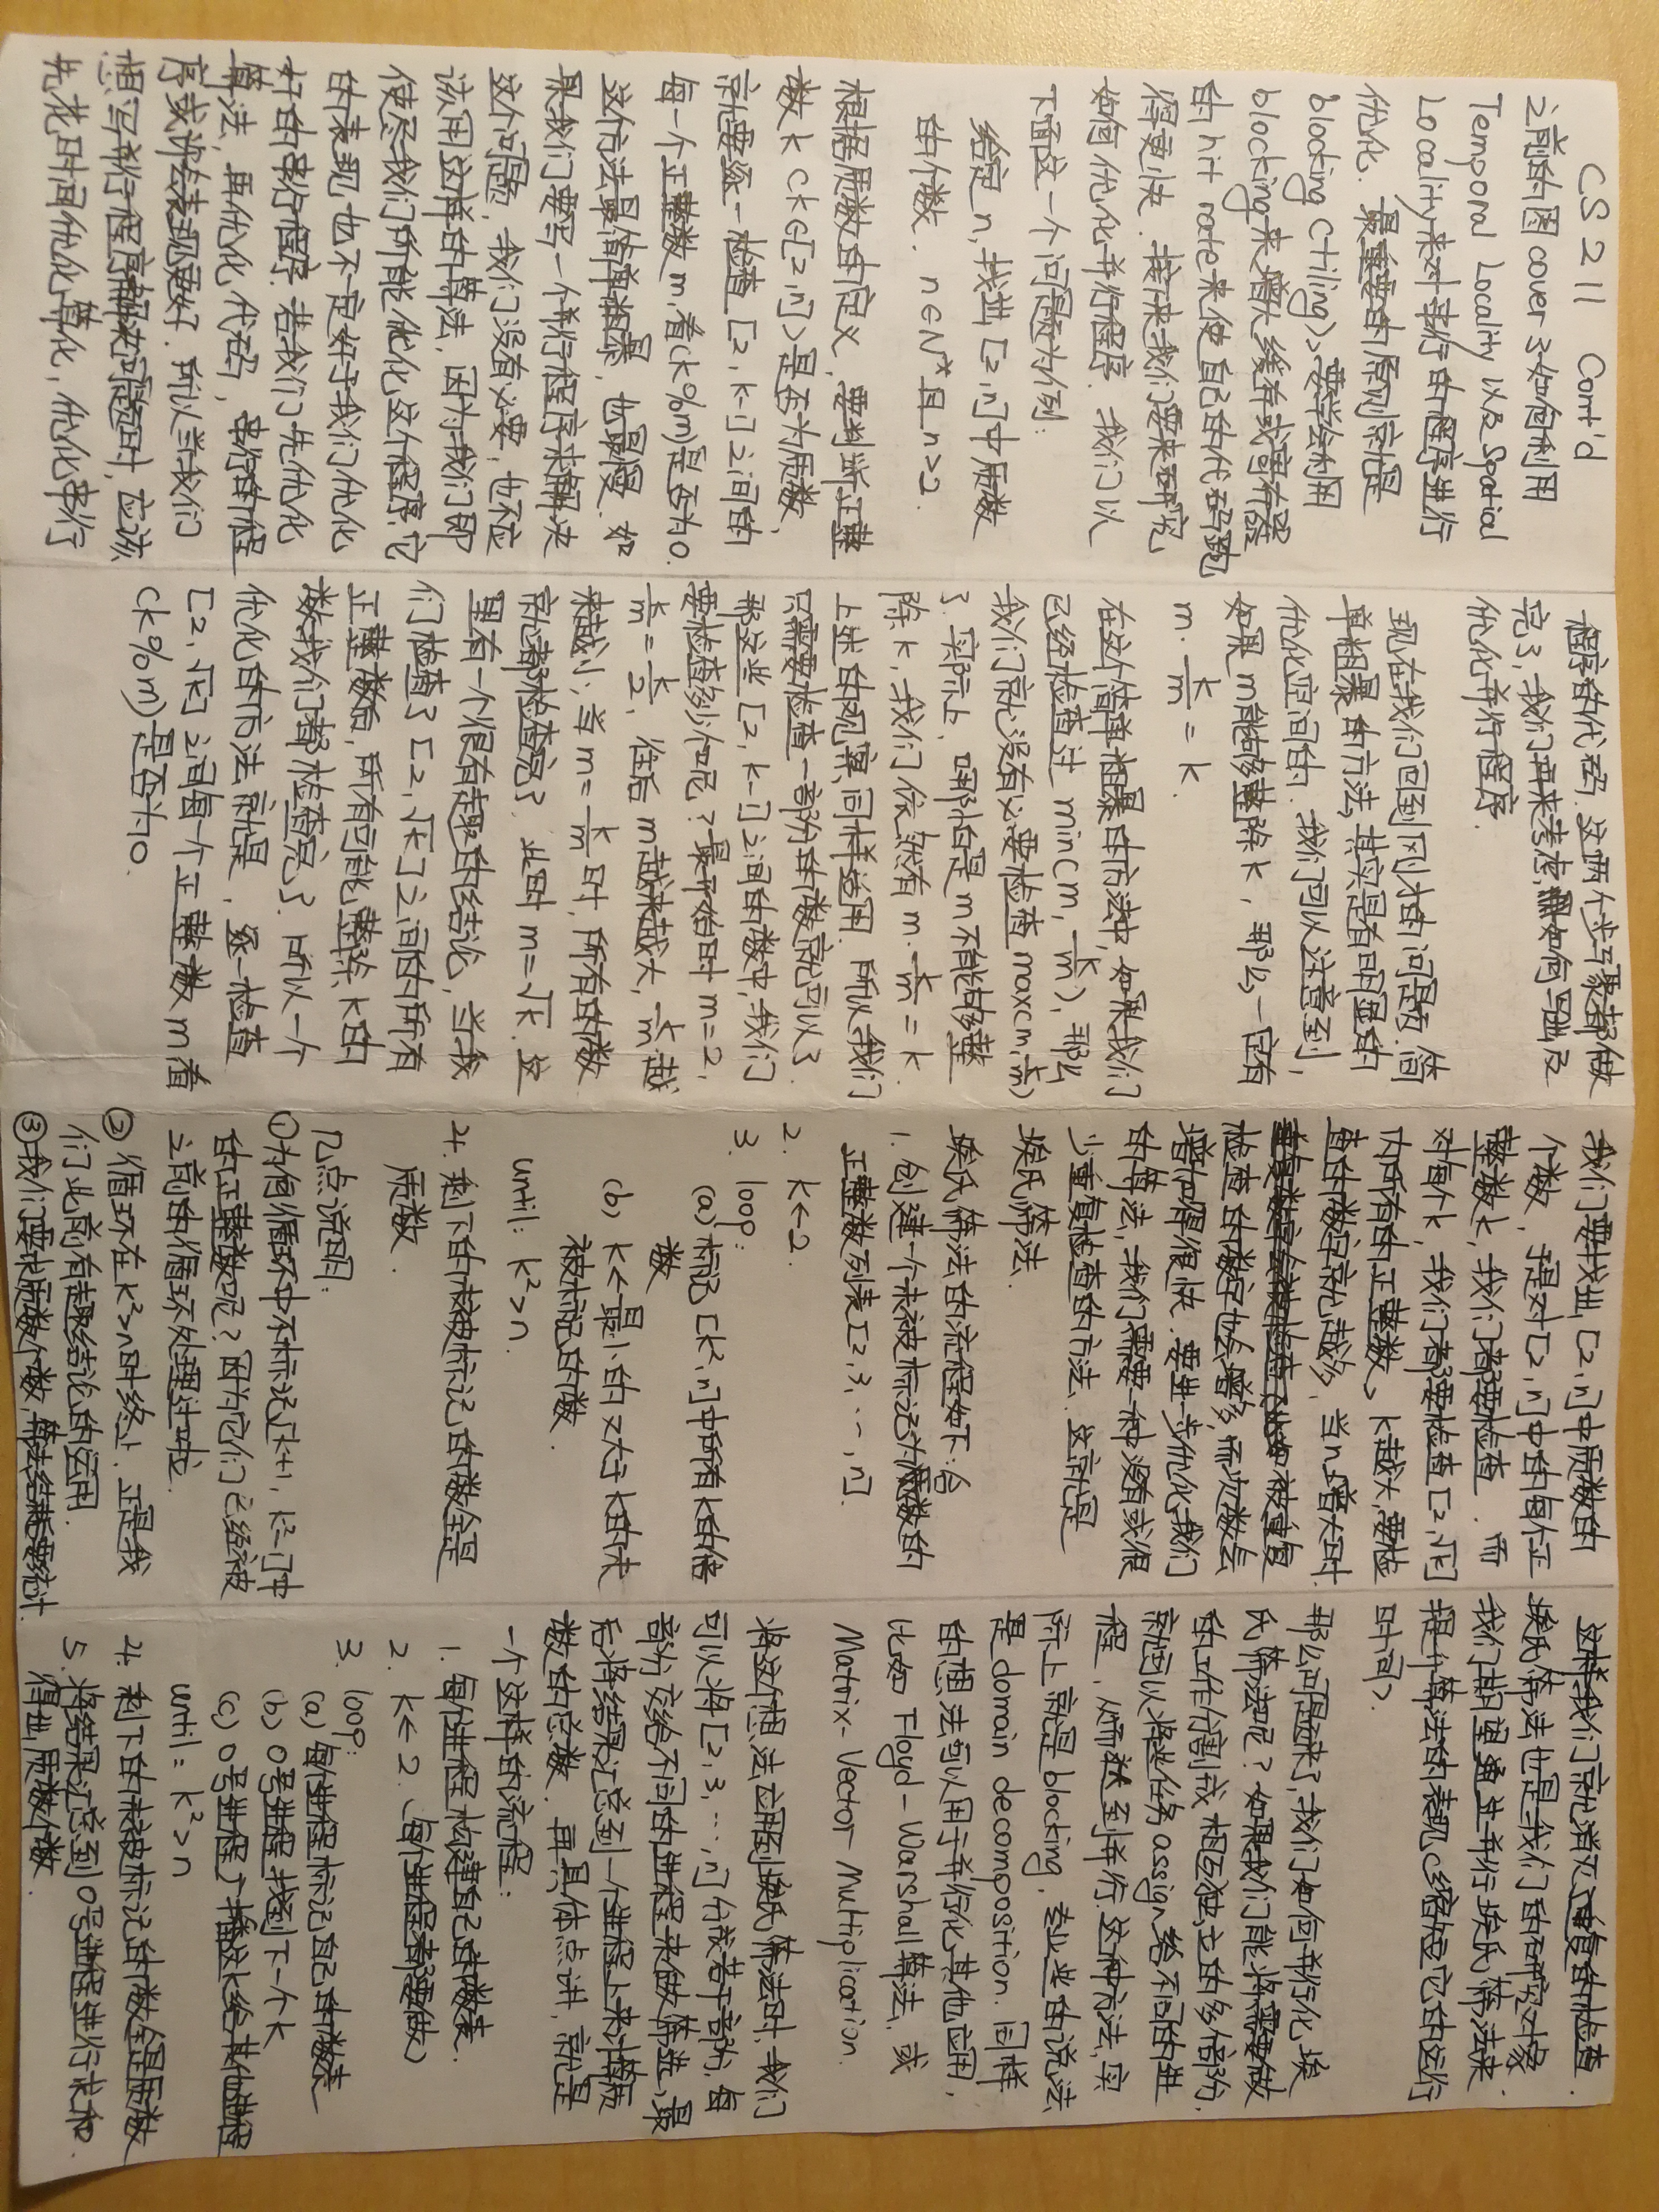 CS 211 Cont'd
之前的图cover了如何利用
Temporal Locality 以及 Spatial
Locality 来对串行的程序进行
优化. 最重要的原则就是
blocking (tiling), 要学会利用
blocking 来增大缓存或寄存器
的 hit rate 来使自己的代码跑
得更快. 接下来我们要来研究
如何优化并行程序. 我们以
下面这一个问题为例:
给定 n, 找出 [2, n] 中质数
的个数. n∈N* 且 n>2.
根据质数的定义, 要判断正整
数 k (k∈[2,n]) 是否为质数,
就要逐一检查 [2, k-1] 之间的
每一个正整数 m, 看(k%m)是否为0.
这个方法最简单粗暴, 也最慢. 如
果我们要写一个并行程序来解决
这个问题, 我们没有必要, 也不应
该用这样的算法, 因为我们即
使尽我们所能优化这个程序, 它
的表现也不一定好于我们优化
好的串行程序. 若我们先优化
算法, 再优化代码, 串行的程
序或许会表现更好. 所以当我们
想写并行程序解决问题时, 应该
先花时间优化算化, 优化串行
程序的代码. 这两个步骤都做
完了, 我们再来考虑如何写出及
优化并行程序.
现在我们回到刚才的问题. 简
单粗暴的方法, 其实是有明显的
优化空间的. 我们可以注意到,
如果 m 能够整除 k, 那么一定有
m · k/m = k.
在这个简单粗暴的方法中, 如果我们
已经检查过 min(m, k/m), 那么
我们就没有必要检查 max(m, k/m)
了. 实际上, 哪怕是 m 不能够整
除 k, 我们依然有 m · k/m = k.
上述的观察同样适用. 所以我们
只需要检查一部分的数就可以了.
那这些 [2, k-1] 之间的数中, 我们
要检查多少个呢? 最开始时 m=2,
k/m = k/2, 往后 m 越来越大, k/m 越
来越小, 当 m = k/m 时, 所有的数
就都检查完了. 此时 m=√k. 这
里有一个很有趣的结论, 当我
们检查了 [2, √k] 之间的所有
正整数后, 所有可能整除 k 的
数我们都检查完了. 所以一个
优化的方法就是, 逐一检查
[2, √k] 之间每一个正整数 m 看
(k%m) 是否为0.
我们要找出 [2, n] 中质数的
个数, 于是对 [2, n] 中的每个正
整数 k, 我们都要检查. 而
对每个 k, 我们都要检查 [2, √k]
内所有的正整数, k 越大, 要检
查的数字就越多, 当 n 增大时.
重复数字会被检查 比如 被重复
检查的数字也会增多, 而次数会
增加得很快. 要进一步优化我们
的算法, 我们需要一种没有或很
少重复检查的方法. 这就是
埃氏筛法.
埃氏筛法的流程如下:
1. 创建一个未被标记为合数的
正整数列表 [2, 3, ..., n].
2. k←2.
3. loop:
(a) 标记 [k², n] 中所有 k 的倍
数
(b) k←最小的又大于 k 的未
被标记的数.
until: k²>n.
4. 剩下的未被标记的数全是
质数.
几点说明:
①为何循环中不标记[k+1, k²-1]中
的正整数呢? 因为它们已经被
之前的循环处理过啦.
②循环在 k²>n 时终止. 正是我
们此前有趣结论的运用.
③我们要求质数个数, 算法结束要统计.
这样我们就消灭了重复的检查.
埃氏筛法也是我们的研究对象.
我们期望通过并行埃氏筛法来
提升算法的表现 (缩短它的运行
时间).
那么问题来了, 我们如何并行化埃
氏筛法呢? 如果我们能将需要做
的工作分割成相互独立的多个部分,
就可以将些任务 assign 给不同的进
程, 从而达到并行. 这种方法, 实
际上就是 blocking, 专业些的说法
是 domain decomposition. 同样
的想法可以用于并行化其他应用,
比如 Floyd-Warshall算法, 或
Matrix-Vector Multiplication.
将这个想法应用到埃氏筛法时, 我们
可以将 [2, 3, ..., n] 分成若干部分, 每
部分交给不同的进程来做筛选, 最
后将结果汇总到一个进程上来计算质
数的总数. 再具体点讲, 就是
一个这样的流程:
1. 每个进程构建自己的数表.
2. k←2. (每个进程都要做)
3. loop:
(a) 每个进程标记自己的数表
(b) 0号进程找到下一个 k
(c) 0号进程广播这k给其他进程
until: k²>n
4. 剩下的未被标记的数全是质数
5. 将结果汇总到0号进程进行求和.
得出质数个数.